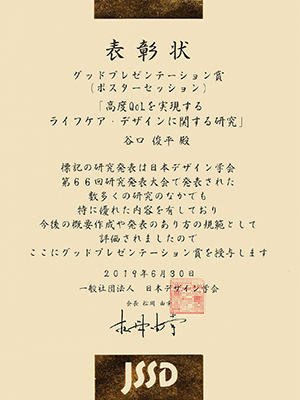 表彰状
グッドプレゼンテーション賞
(ポスターセッション)
「高度QoLを実現する
ライフケア・デザインに関する研究」
谷口 俊平 殿
標記の研究発表は日本デザイン学会
第66回研究発表大会で発表された
数多くの研究のなかでも
特に優れた内容を有しており
今後の概要作成や発表のあり方の規範として
評価されましたので
ここにグッドプレゼンテーション賞を授与します
2019年6月30日
一般社団法人 日本デザイン学会
会長 松岡 由幸
JSSD